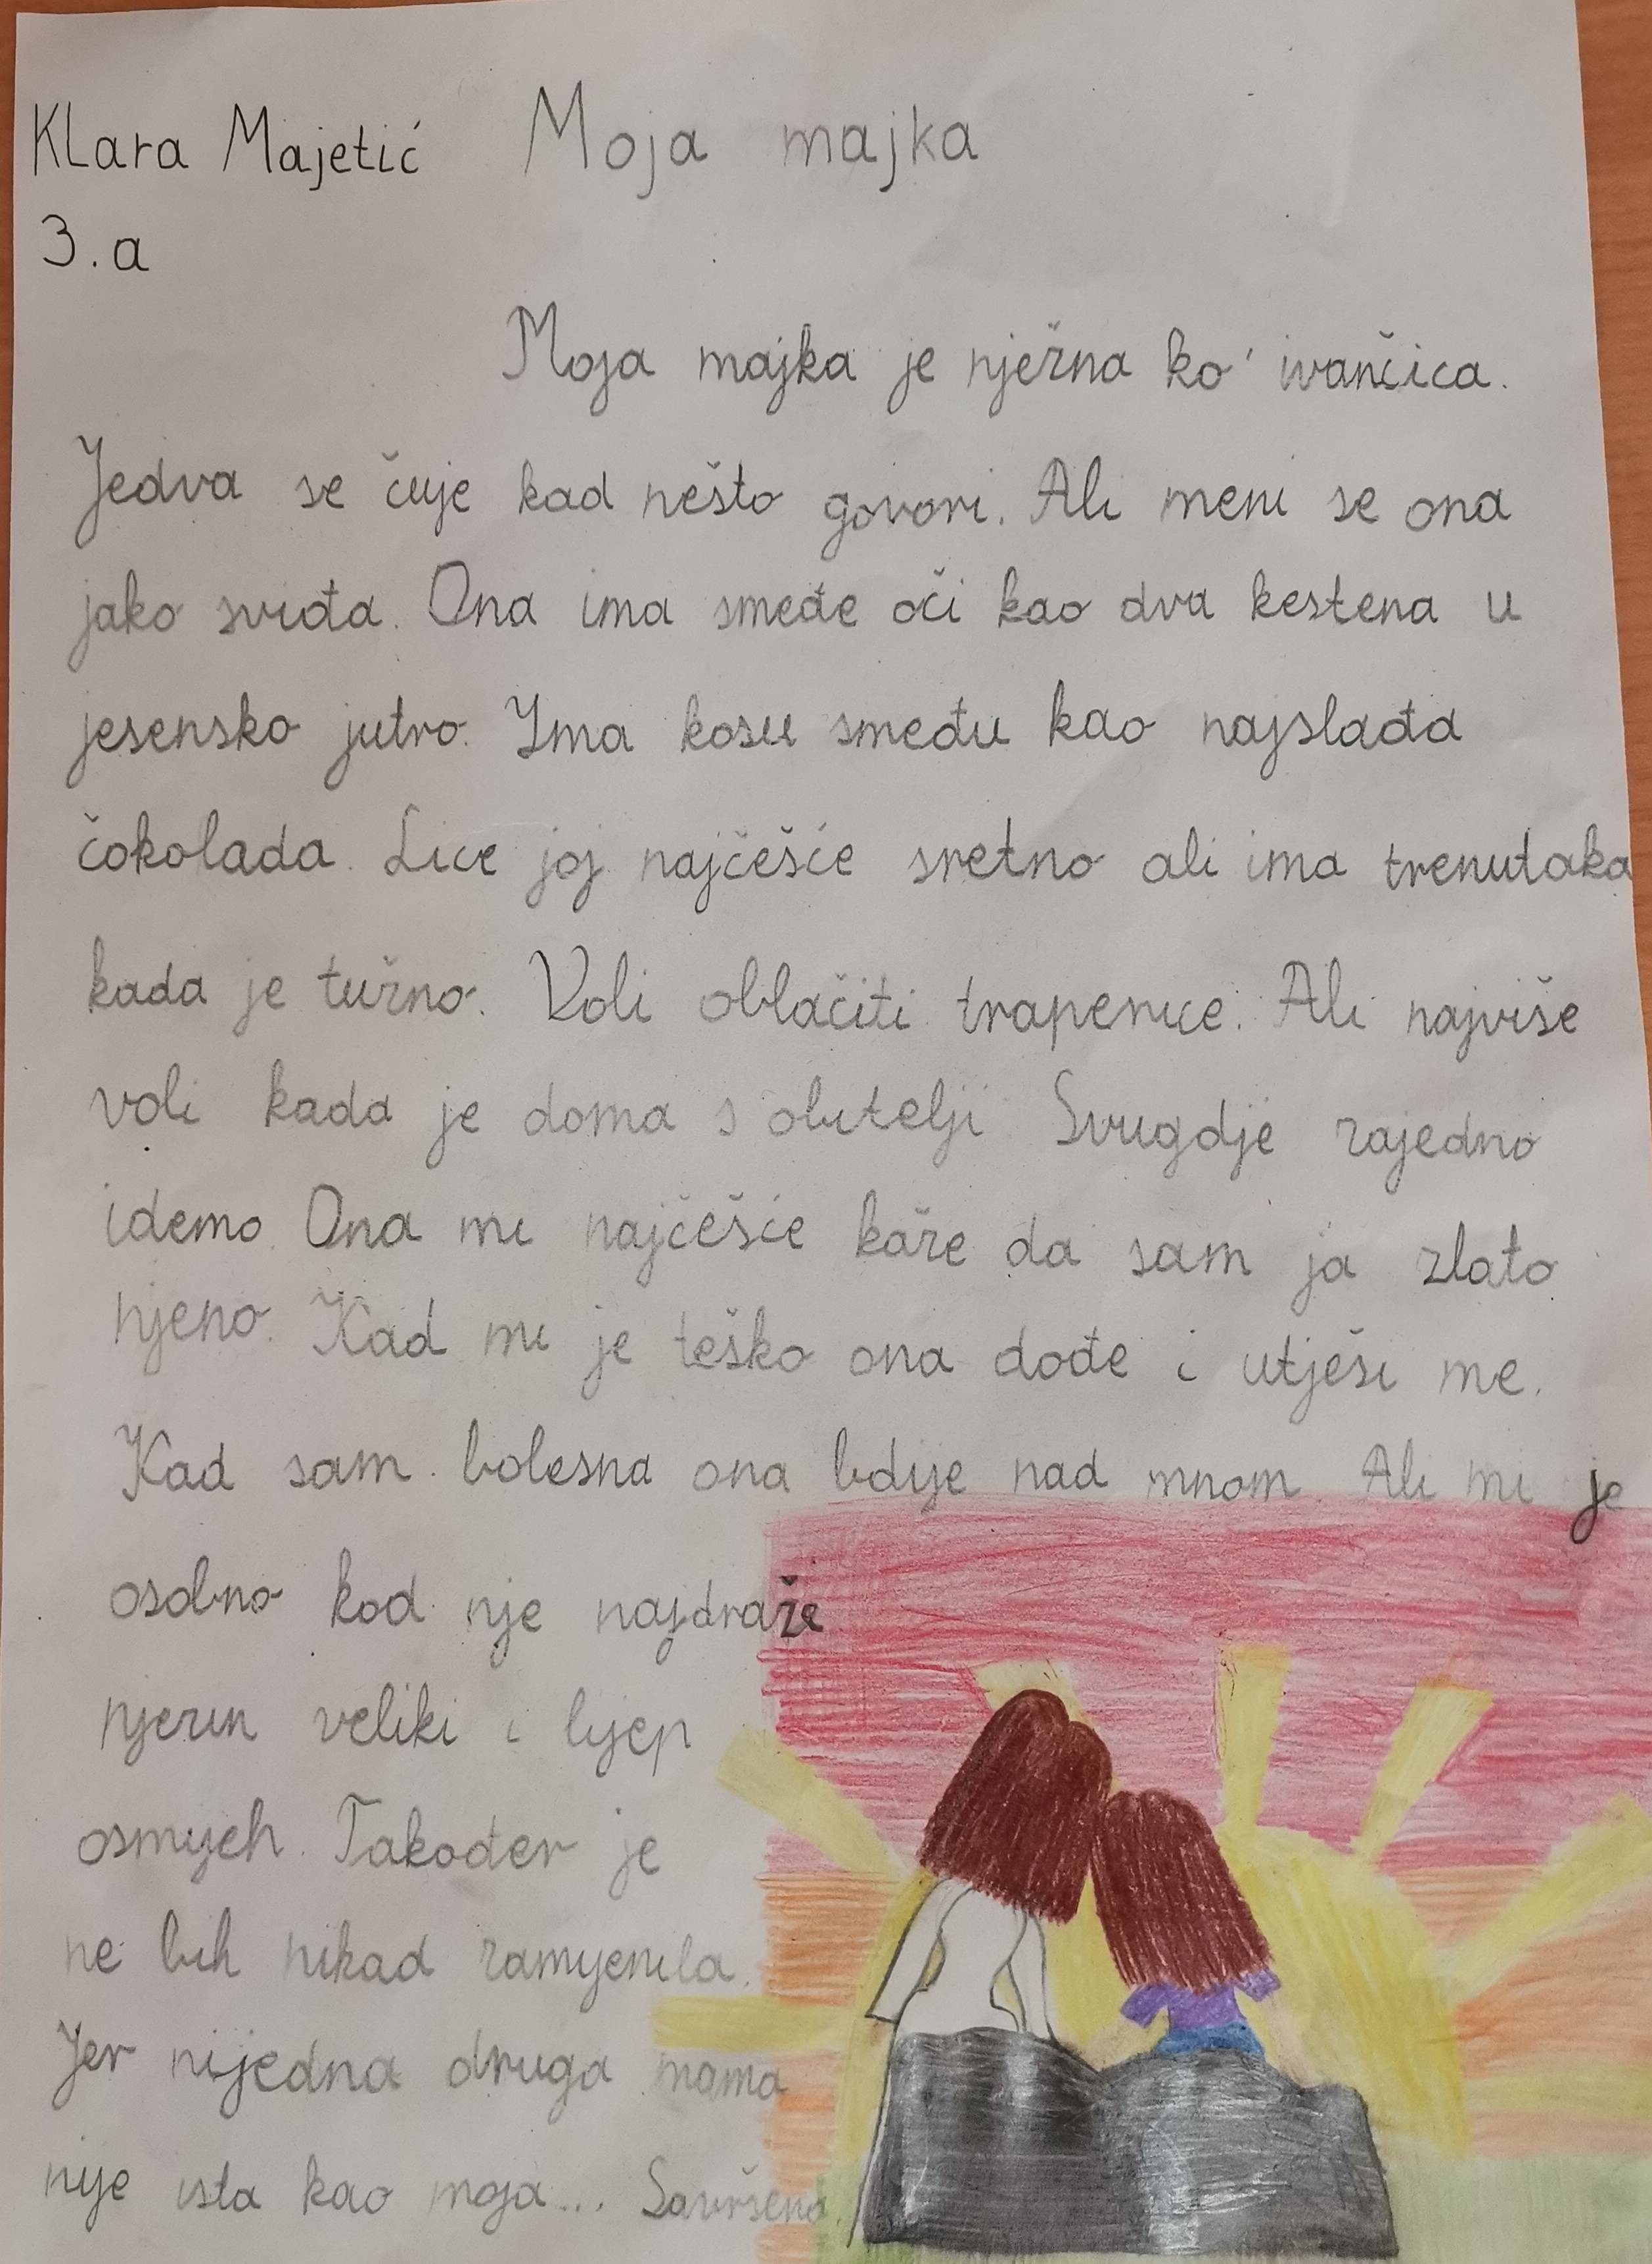 Klara Majetić Moja majka
3.a
Moja majka je nježna ko' ivančica.
Jedva se čuje kad nešto govori. Ali meni se ona
jako sviđa. Ona ima smeđe oči kao dva kestena u
jesensko jutro. Ima kosu smeđu kao najslađa
čokolada. Lice joj najčešće sretno ali ima trenutaka
kada je tužno. Voli oblačiti traperice. Ali najviše
voli kada je doma s obitelji. Svugdje zajedno
idemo. Ona mi najčešće kaže da sam ja zlato
njeno. Kad mi je teško ona dođe i utješi me.
Kad sam bolesna ona bdije nad mnom. Ali mi je
osobno kod nje najdraže
njezin veliki i lijep
osmijeh. Također je
ne bih nikad zamijenila.
Jer nijedna druga mama
nije ista kao moja... Savršena.